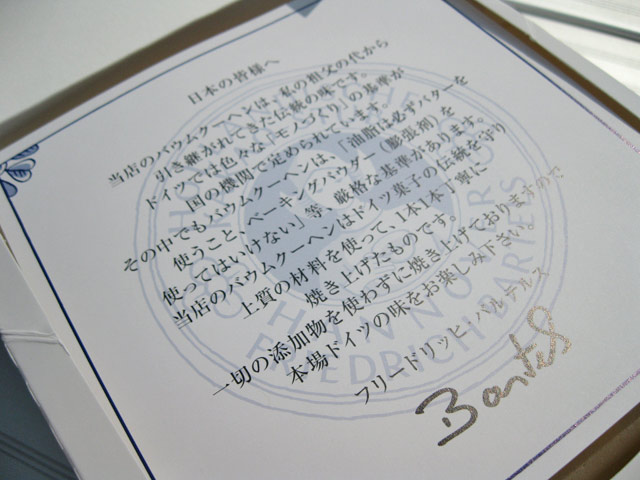 日本の皆様へ
当店のバウムクーヘンは、私の祖父の代から
引き継がれてきた伝統の味です。
ドイツでは色々な「モノづくり」の基準が
国の機関で定められています。
その中でもバウムクーヘンは、「油脂は必ずバターを
使うこと、ベーキングパウダー(膨張剤)を
使ってはいけない」等、厳格な基準があります。
当店のバウムクーヘンはドイツ菓子の伝統を守り
上質の材料を使って、1本1本丁寧に
焼き上げたものです。
一切の添加物を使わずに焼き上げておりますので
本場ドイツの味をお楽しみ下さい。
フリードリッヒ・バルテルス
Bartels
HANNOVER
FRIEDRICH BARTELS